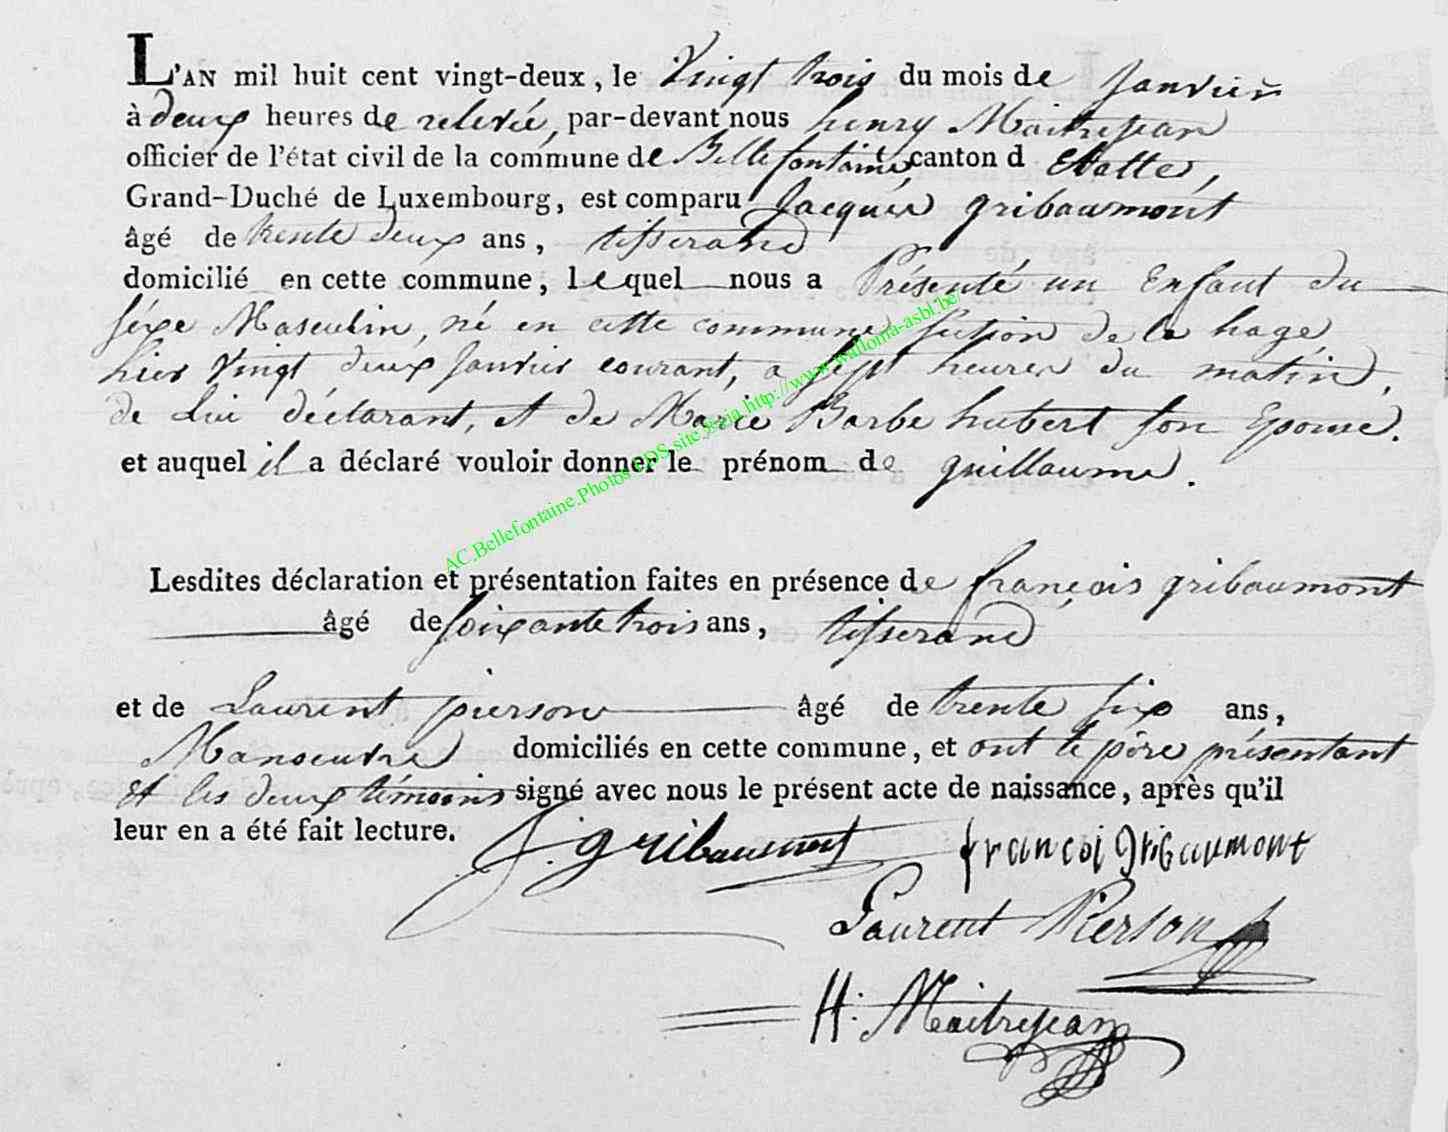 L'AN mil huit cent vingt-deux, le Vingt trois du mois de Janvier
à deux heures de relevée, par-devant nous henry Maitrejean
officier de l'état civil de la commune de Bellefontaine, canton d' Etalle,
Grand-Duché de Luxembourg, est comparu Jacques gribaumont
âgé de trente deux ans, tisserand
domicilié en cette commune, lequel nous a Présenté un Enfant du
séxe Masculin, né en cette commune, section de la hage,
hier Vingt deux Janvier courant, a sept heures du matin,
de Lui déclarant, et de Marie Barbe hubert son Epouse.
et auquel il a déclaré vouloir donner le prénom de guillaume.
AC.Bellefontaine.Photos.PDS.site.Jesia.http://www.walloma-asbl.be
Lesdites déclaration et présentation faites en présence de françois gribaumont
âgé de soixante trois ans, tisserand
et de Laurent pierson âgé de trente six ans,
Manoeuvre domiciliés en cette commune, et ont le père présentant
et les deux témoins signé avec nous le présent acte de naissance, après qu'il
leur en a été fait lecture.
J. gribaumont françoi Gribaumont
Laurent Pierson
H. Maitrejean